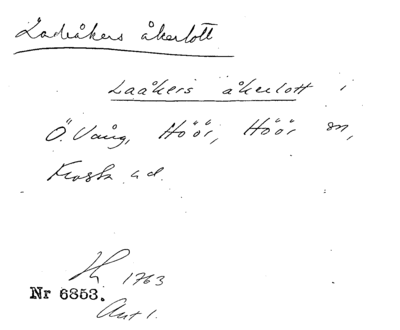 Ladåkers åkerlott
Laåkers åkerlott i
Ö. Vång, Höör, Höör sn,
Frosta hd.
1763
Nr 6853.
Akt 1.